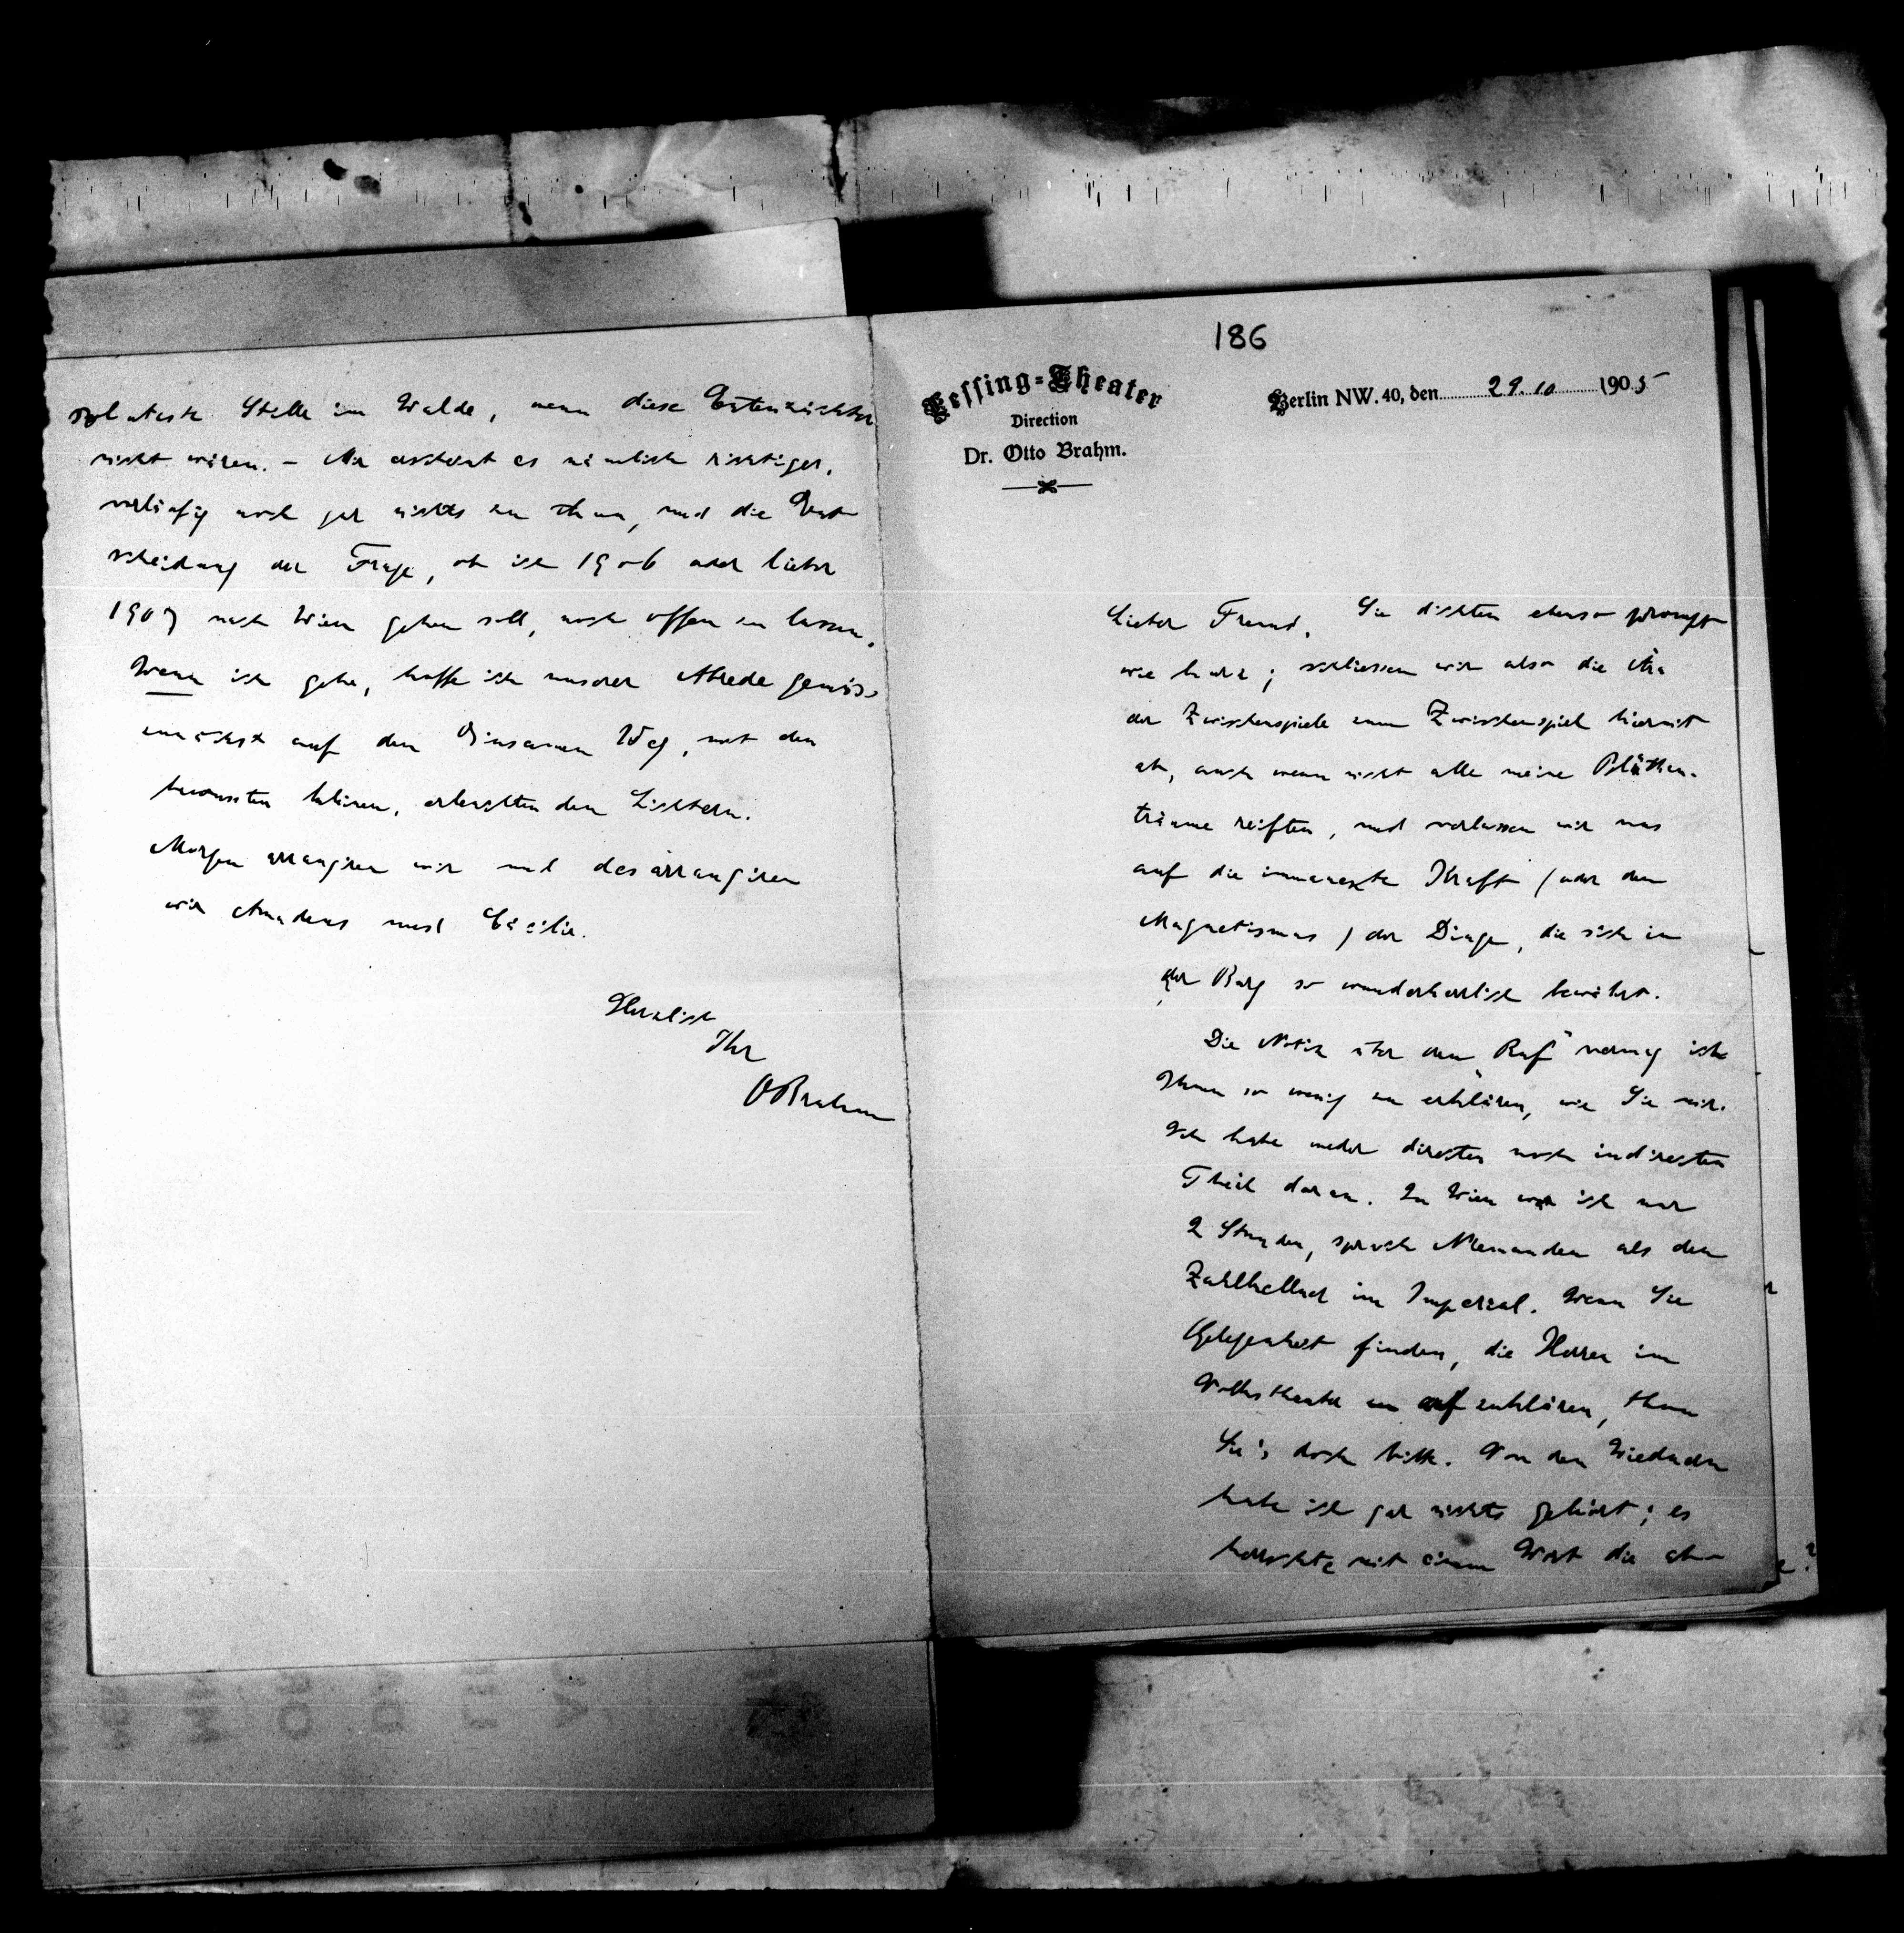 186
Lessing-Theater
Direction
Dr. Otto Brahm.
Berlin NW. 40, den 29. 10 1905
Lieber Freund, Sie dichten ebenso prompt
wie kurz; schliessen wir also die Ära
der Zwischenspiele zum Zwischenspiel hiermit
ab, auch wenn nicht alle meine Blüthen-
träume reiften, und verlassen wir uns
auf die immanente Kraft (oder den
Magnetismus) der Dinge, die sich in
der Burg so wunderherrlich bewährt.
Die Notiz über den „Ruf" vermag ich
Ihnen so wenig zu erklären, wie Sie mir.
Ich habe weder directen noch indirecten
Theil daran. In Wien war ich nur
2 Stunden, sprach Niemanden als den
Zahlkellner im Imperial. Wenn Sie
Gelegenheit finden, die Herren im
Volkstheater aufzuklären, thun
Sie's doch bitte. Von den Wiednern
habe ich gar nichts gehört; es
herrschte mit einem Wort die ab-
soluteste Stille im Walde, wenn diese
nicht wären. – Mir erscheint es nämlich richtiger,
vorläufig noch gar nichts zu thun, und die Ent-
scheidung der Frage, ob ich 1906 oder lieber
1907 nach Wien gehen soll, noch offen zu lassen.
Wenn ich gehe, hoffe ich unserer Abrede gemäss
zunächst auf den Einsamen Weg, mit den
bewussten kleinen, erleichternden Lichtern.
Morgen arrangiren wir und desarrangiren
wir Amadeus und Cäcilie.
Herzlich
Ihr
OBrahm